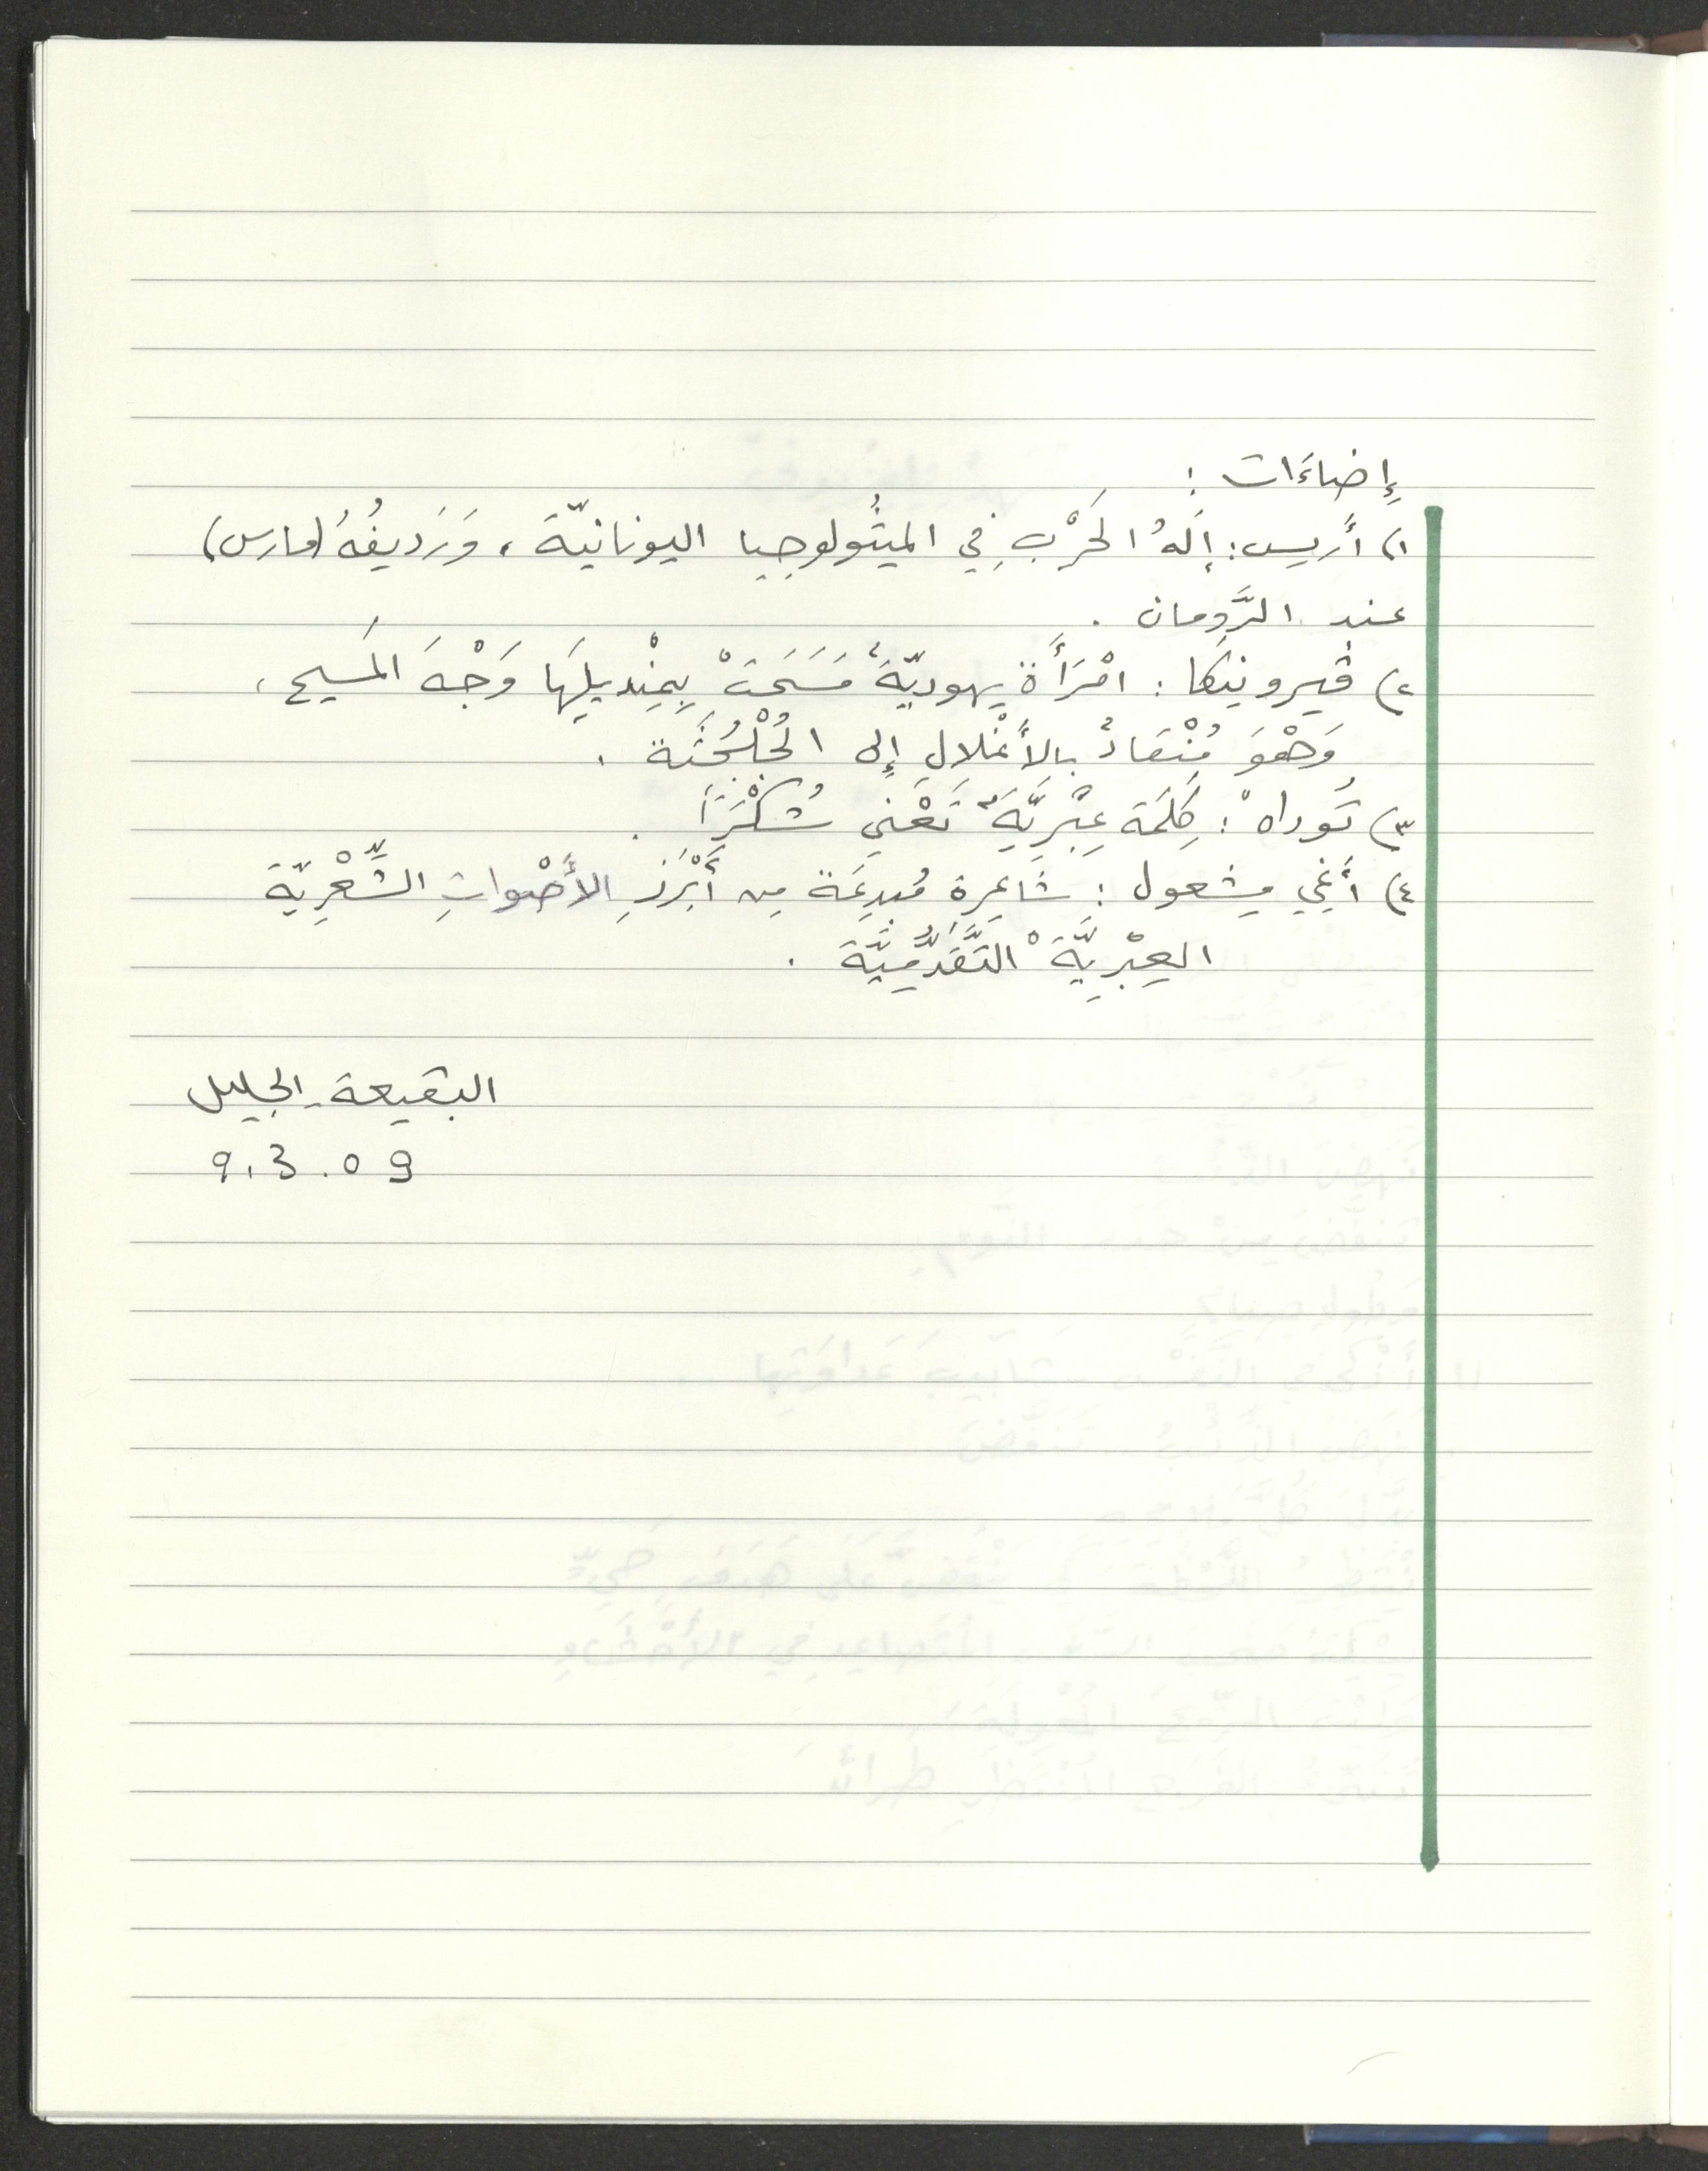 إِضاءَات :
١) أَريس: إِلَهُ الحَرْبِ فِي الميثُولوجيا اليونانيّة، وَرَديفُهُ (مارس)
عند الرَّومان .
٢) ڤيرونيكا : امْرَأَة يهوديّةٌ مَسَحَتْ بِمِنْديلِهَا وَجْهَ المَسيح،
وَهْوَ مُنْقادٌ بالأَغْلالِ إِلى الجُلْجُثَة .
٣) تُوراهْ : كِلَمَة عِبْرِيَّةٌ تَعْنِي شُكْرَاً .
٤) أَغِي مِشعول : شَاعِرة مُبدِعَة مِن أَبْرَزِ الأَصْواتِ الشِّعْرِيّة
العِبْرِيَّةْ التَّقَدُّمِيَّة .
البقيعة - الجليل
9.3.09